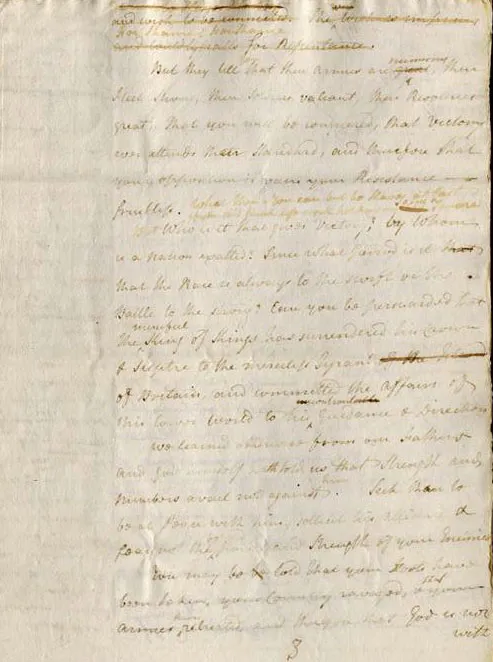 and wish to be connected. The
for Repentance.
But they tell you that their Armies are numerous, their
Fleet strong, their Soldiers valiant, their Resources
great; that you will be conquered, that Victory
ever attends their Standard, and therefore that
your opposition is vain your Resistance
fruitless. What then? You can but be Slaves at last
But Who is it that gives Victory? by Whom
is a Nation exalted? Since what period is it
that the Race is always to the swift or the
Battle to the strong? Can you be persuaded that
merciful
the King of Kings has surrendered his Crown
& Sceptre to the merciless Tyrant
of Britain, and committed the affairs of
uncontroulable
this lower World to his Guidance & Direction
We learned otherwise from our Fathers
and God himself hath told us that Strength and
Numbers avail not against him. Seek then to
be at Peace with him, sollicit his alliance &
fear not the Strength of your Enemies
We may be told that your Forts have
been taken, your Country ravaged, & that your
armies retreated, and therefore that God is not
with
3